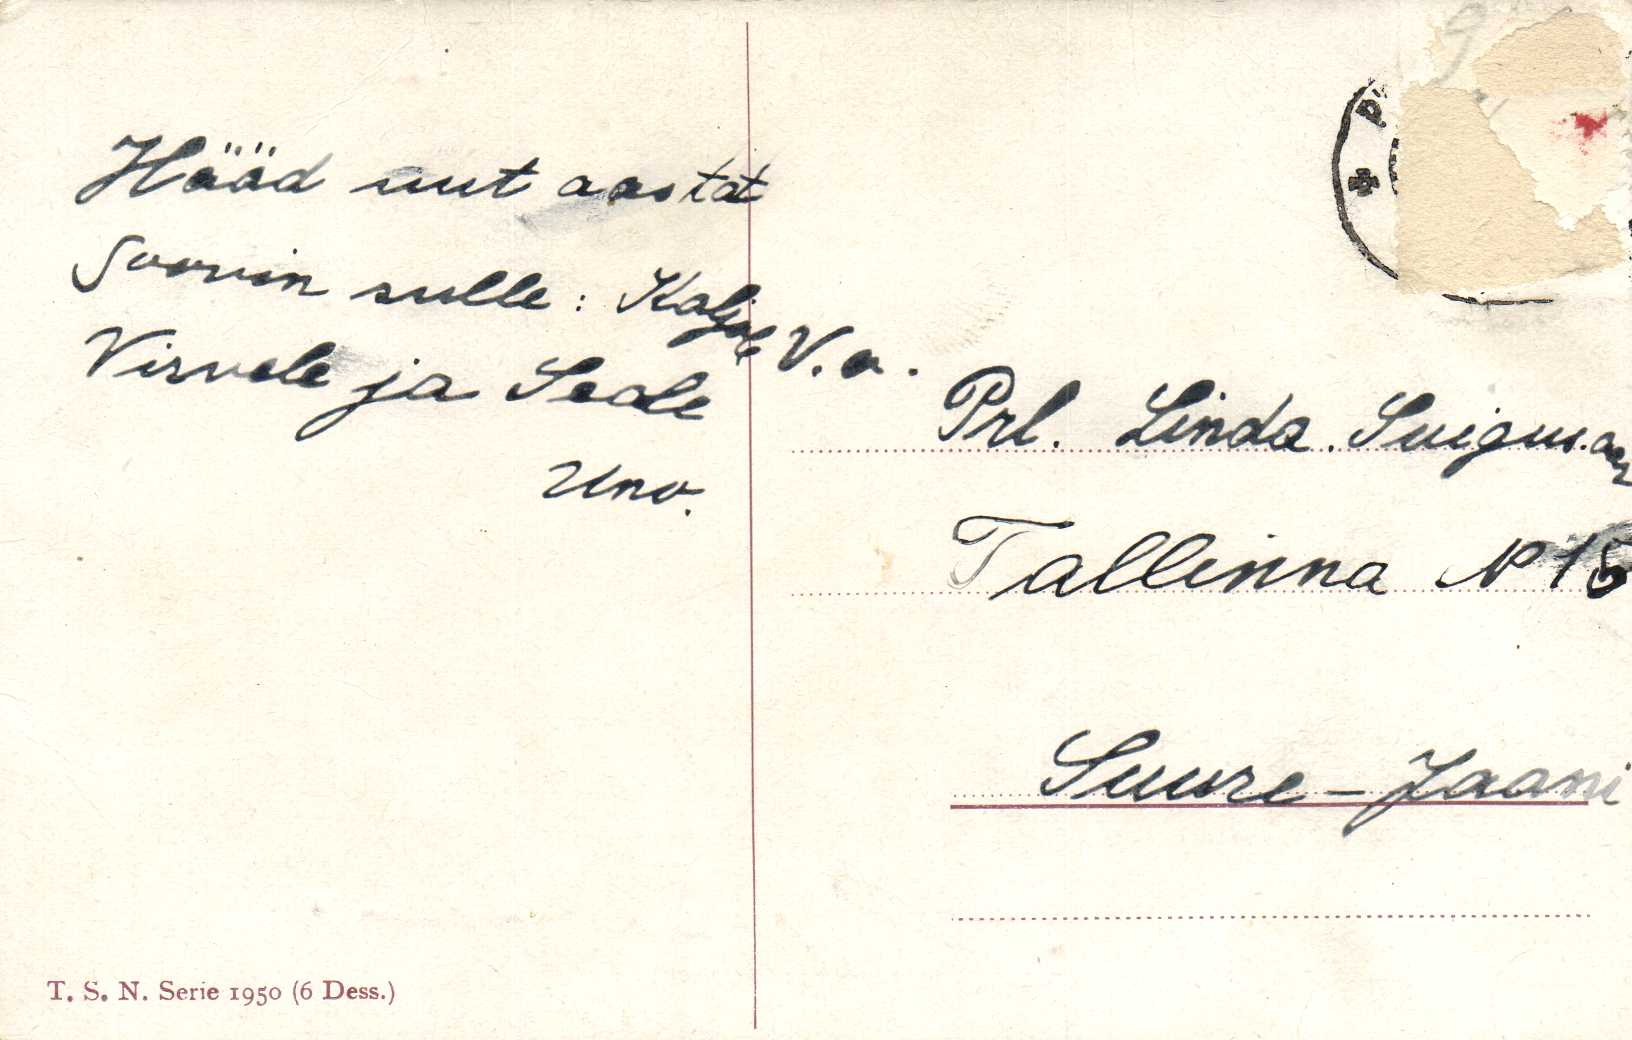 Hääd uut aastat
soovin sulle: Kaljole
Virvele ja Seale
Uno.
V. a.
Prl. Linda Suigusaar
Tallinna № 15
Suure-Jaani
T. S. N. Serie 1950 (6 Dess.)